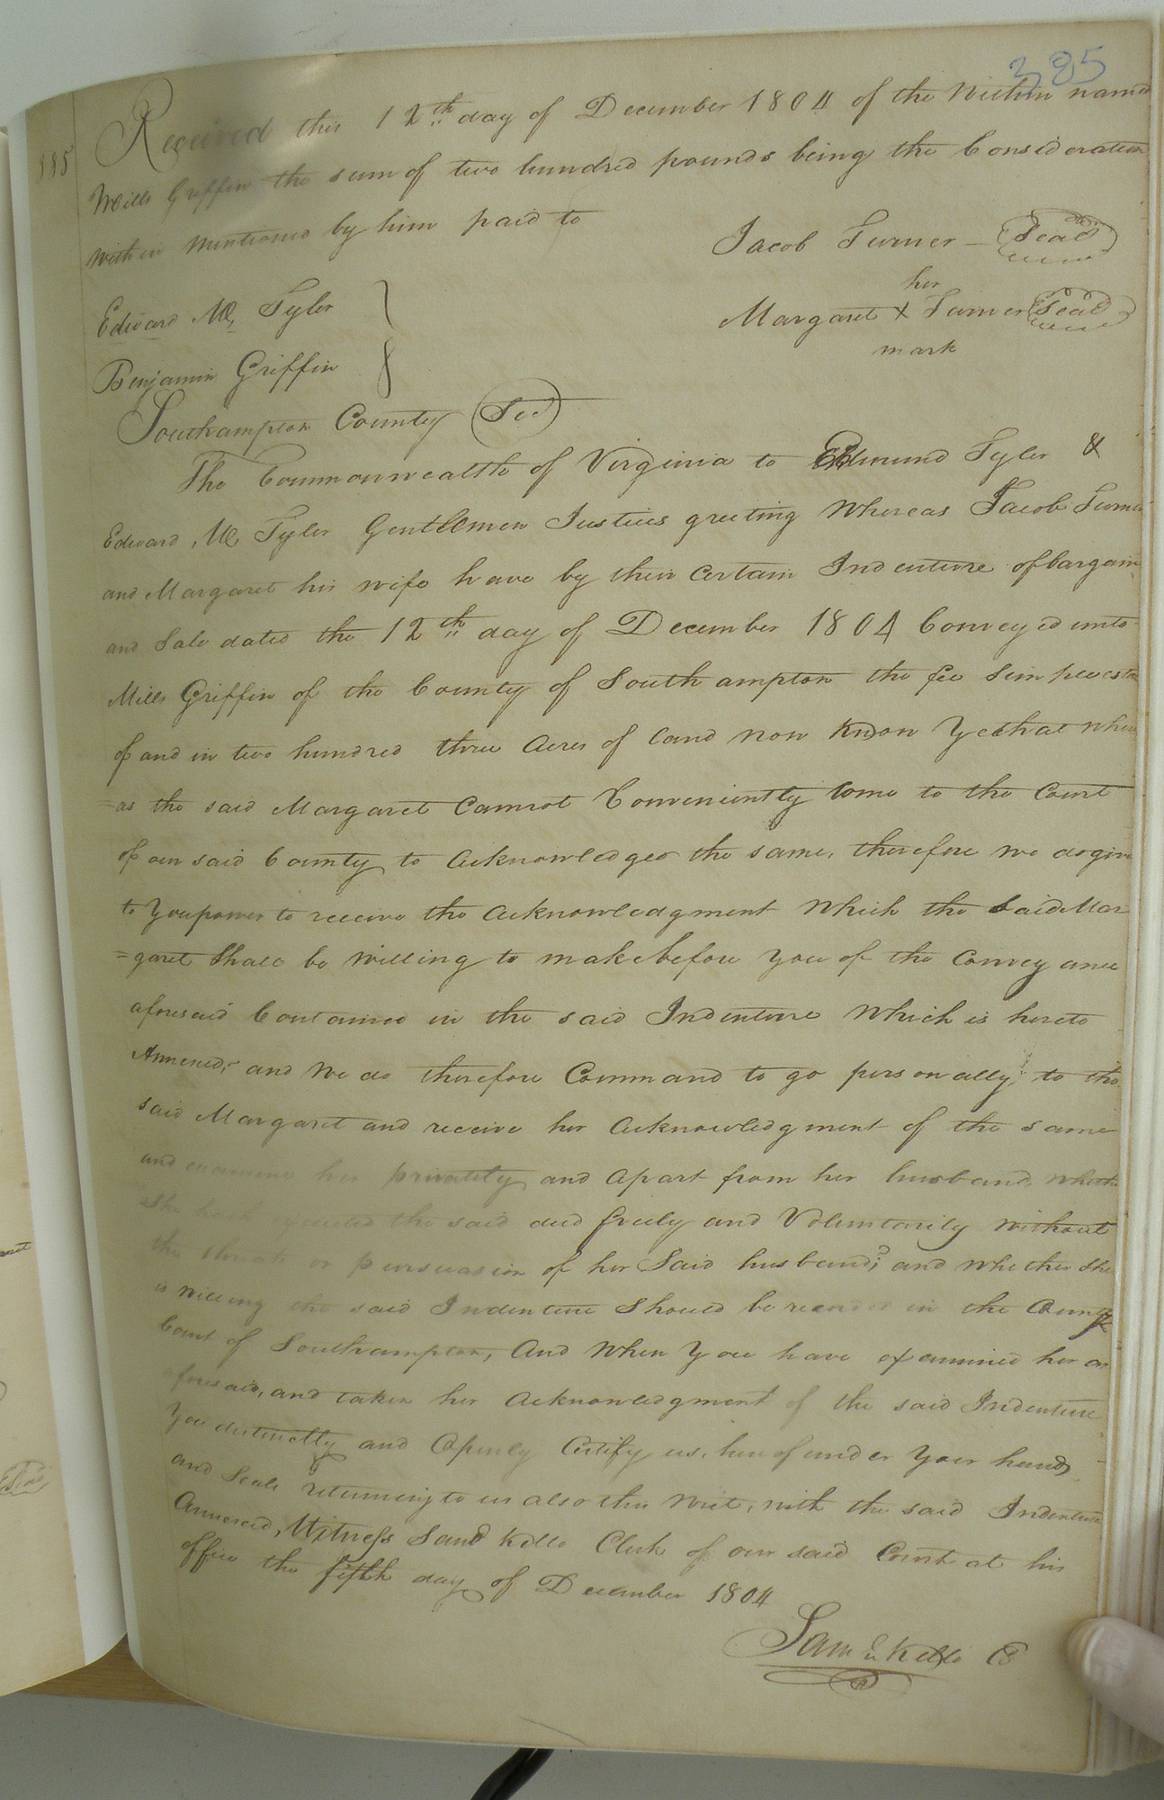 385
115
Received this 12th day of December 1804 of the Within named
Mills Griffin the sum of two hundred pounds being the Consideration
within mentioned by him paid to
Jacob Turner — Seal
her
Margaret X Turner Seal
mark
Edward M. Tyler
Benjamin Griffin
Southampton County Sct
The Commonwealth of Virginia to Edmund Tyler &
Edward M Tyler Gentlemen Justices greeting Whereas Jacob Turner
and Margaret his wife have by their Certain Indenture of bargain
and Sale dated the 12th day of December 1804 Conveyed unto
Mills Griffin of the County of Southampton the fee Simple estate
of and in two hundred three Acres of land now know Ye that when
=as the said Margaret Cannot Conveniently Come to the Court
of our said County to Acknowledged the same, therefore we do give
to You power to receive the Acknowledgment Which the Said Mar
=garet Shall be Willing to make before you of the Conveyance
aforesaid Contained in the said Indenture Which is hereto
Annexed, and We do therefore Command to go personally to the
said Margaret and receive her Acknowledgment of the same
and examine her privately and apart from her husband, whether
She hath executed the said deed freely and Voluntarily without
the threats or pursuasion of her Said husband; and whether she
is willing the said Indenture Should be recorded in the County
Court of Southampton, And When You have examined her as
aforesaid, and taken her Acknowledgment of the said Indenture
You distinctly and Openly Certify us, hereof under Your hands
and Seals returning to us also this Writ, with the said Indenture
Annexed, Witness Saml Kello Clerk of our said Court at his
office the fifth day of December 1804
Saml Kello C